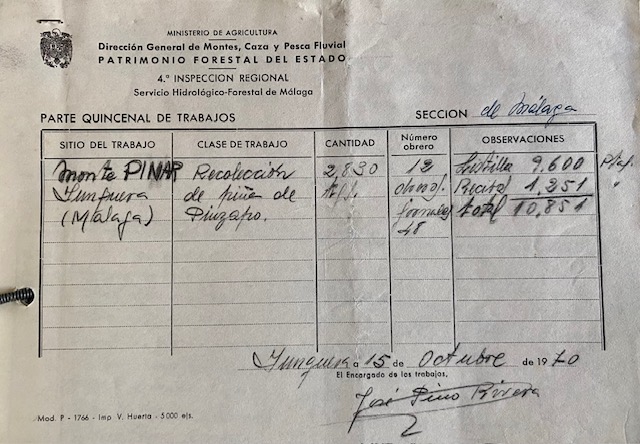 MINISTERIO DE AGRICULTURA
Dirección General de Montes, Caza y Pesca Fluvial
PATRIMONIO FORESTAL DEL ESTADO
4.ª INSPECCION REGIONAL
Servicio Hidrológico-Forestal de Málaga
PARTE QUINCENAL DE TRABAJOS
SECCION de Málaga
SITIO DEL TRABAJO CLASE DE TRABAJO CANTIDAD Número obrero OBSERVACIONES
monte PINAR Recolección 2,830 12 9.600 Ptas.
Yunquera de piña de obreros. 1,251
(Málaga) Pinzapo. jornales total 10,851
48
Yunquera a 15 de Octubre de 1970
El Encargado de los trabajos,
José Pino Rivera
Mod. P - 1766 - Imp V. Huerta - 5.000 ejs.